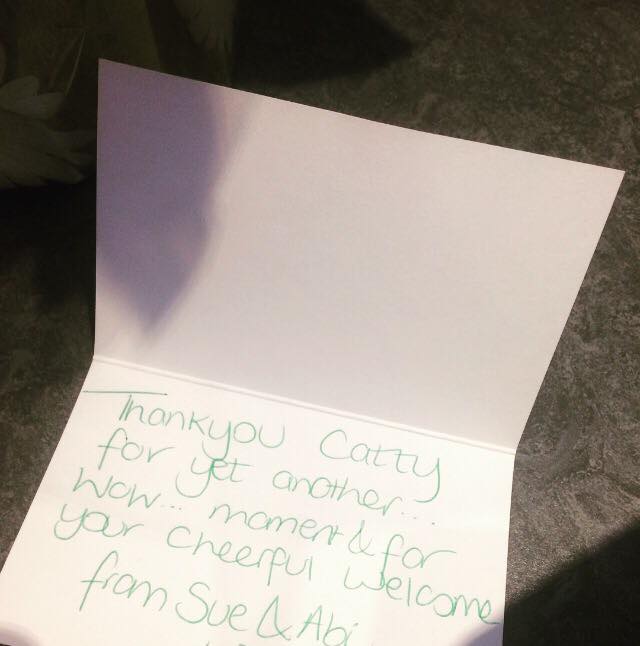 Thankyou Catty
for yet another...
Wow... moment & for
your cheerful welcome
from Sue & Abi